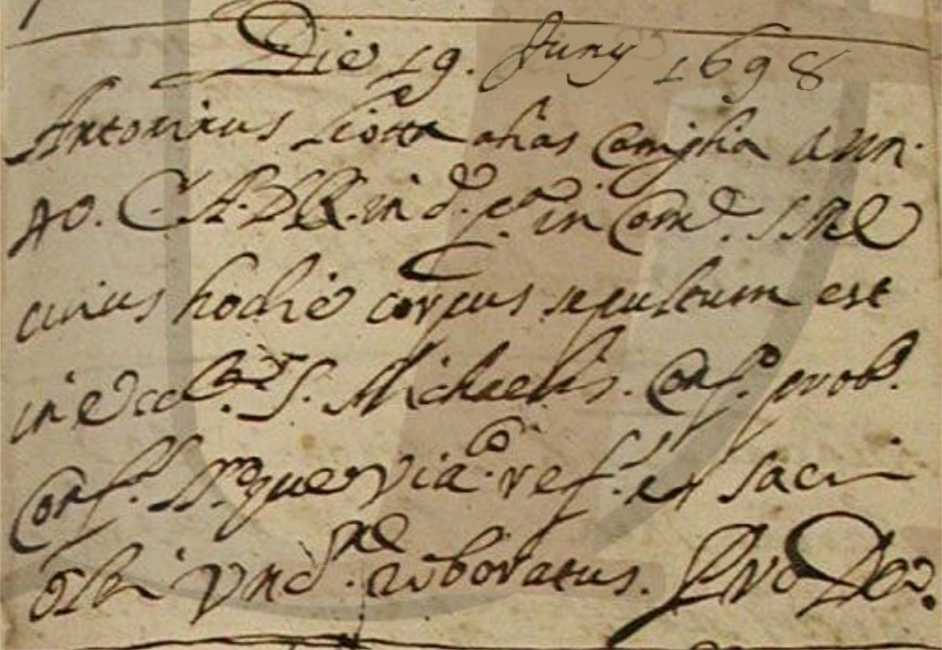 Die 19. Juny 1698
Antoninus Liotta alias Caniglia ann.
40. C. A. D. R. in d.º p.ª in Com.e S. M. E
cuius hodie corpus sepultum est
in Eccl.a S. Michaelis. Conf.º prob.º
Conf.s SS.moque Via.co ref.s et sacri
Olei Vnct.ne roboratus. Pro Deo.